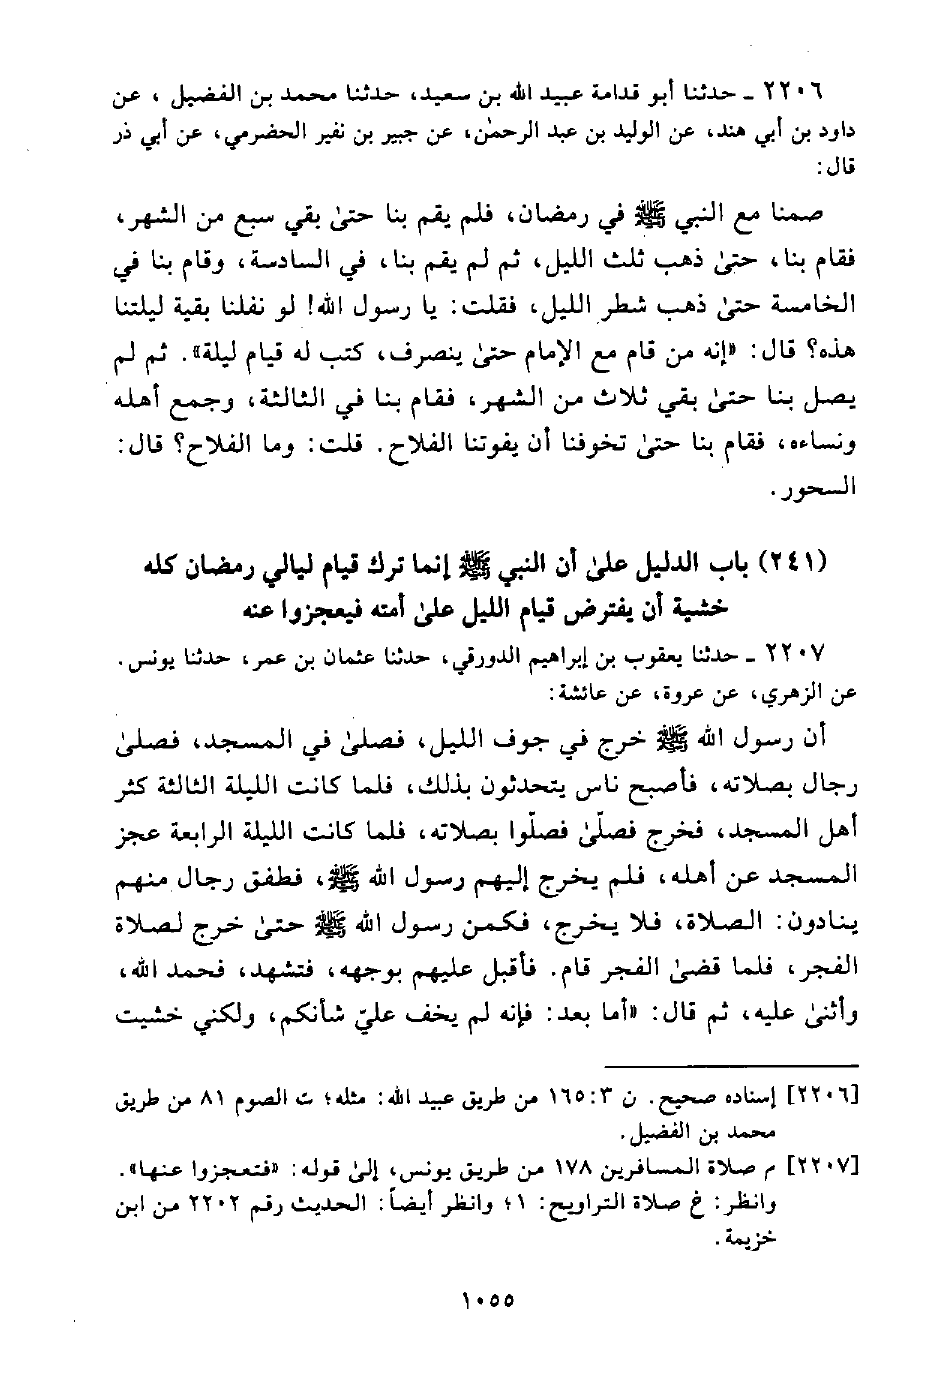 ٢٢٠٦ ـ حدثنا أبو قدامة عبيد الله بن سعيد، حدثنا محمد بن الفضيل ، عن
داود بن أبي هند، عن الوليد بن عبد الرحمٰن، عن جبير بن نفير الحضرمي، عن أبي ذر
قال:
صمنا مع النبي ﷺ في رمضان، فلم يقم بنا حتىٰ بقي سبع من الشهر،
فقام بنا، حتىٰ ذهب ثلث الليل، ثم لم يقم بنا، في السادسة، وقام بنا في
الخامسة حتىٰ ذهب شطر الليل، فقلت: يا رسول الله! لو نفلنا بقية ليلتنا
هذه؟ قال: «إنه من قام مع الإمام حتىٰ ينصرف، كتب له قيام ليلة». ثم لم
يصل بنا حتىٰ بقي ثلاث من الشهر، فقام بنا في الثالثة، وجمع أهله
ونساءه، فقام بنا حتىٰ تخوفنا أن يفوتنا الفلاح. قلت: وما الفلاح؟ قال:
السحور.
(٢٤١) باب الدليل علىٰ أن النبي ﷺ إنما ترك قيام ليالي رمضان كله
خشية أن يفترض قيام الليل علىٰ أمته فيعجزوا عنه
٢٢٠٧ ـ حدثنا يعقوب بن إبراهيم الدورقي، حدثنا عثمان بن عمر، حدثنا يونس.
عن الزهري، عن عروة، عن عائشة:
أن رسول الله ﷺ خرج في جوف الليل، فصلىٰ في المسجد، فصلىٰ
رجال بصلاته، فأصبح ناس يتحدثون بذلك، فلما كانت الليلة الثالثة كثر
أهل المسجد، فخرج فصلّىٰ فصلّوا بصلاته، فلما كانت الليلة الرابعة عجز
المسجد عن أهله، فلم يخرج إليهم رسول الله ﷺ، فطفق رجال منهم
ينادون: الصلاة، فلا يخرج، فكمن رسول الله ﷺ حتىٰ خرج لصلاة
الفجر، فلما قضىٰ الفجر قام. فأقبل عليهم بوجهه، فتشهد، فحمد الله،
وأثنىٰ عليه، ثم قال: «أما بعد: فإنه لم يخف عليّ شأنكم، ولكني خشيت
[٢٢٠٦] إسناده صحيح. ن ٣: ١٦٥ من طريق عبيد الله: مثله؛ ت الصوم ٨١ من طريق
محمد بن الفضيل.
[٢٢٠٧] م صلاة المسافرين ١٧٨ من طريق يونس، إلىٰ قوله: «فتعجزوا عنها».
وانظر: خ صلاة التراويح: ١؛ وانظر أيضاً: الحديث رقم ٢٢٠٢ من ابن
خزيمة.
١٠٥٥